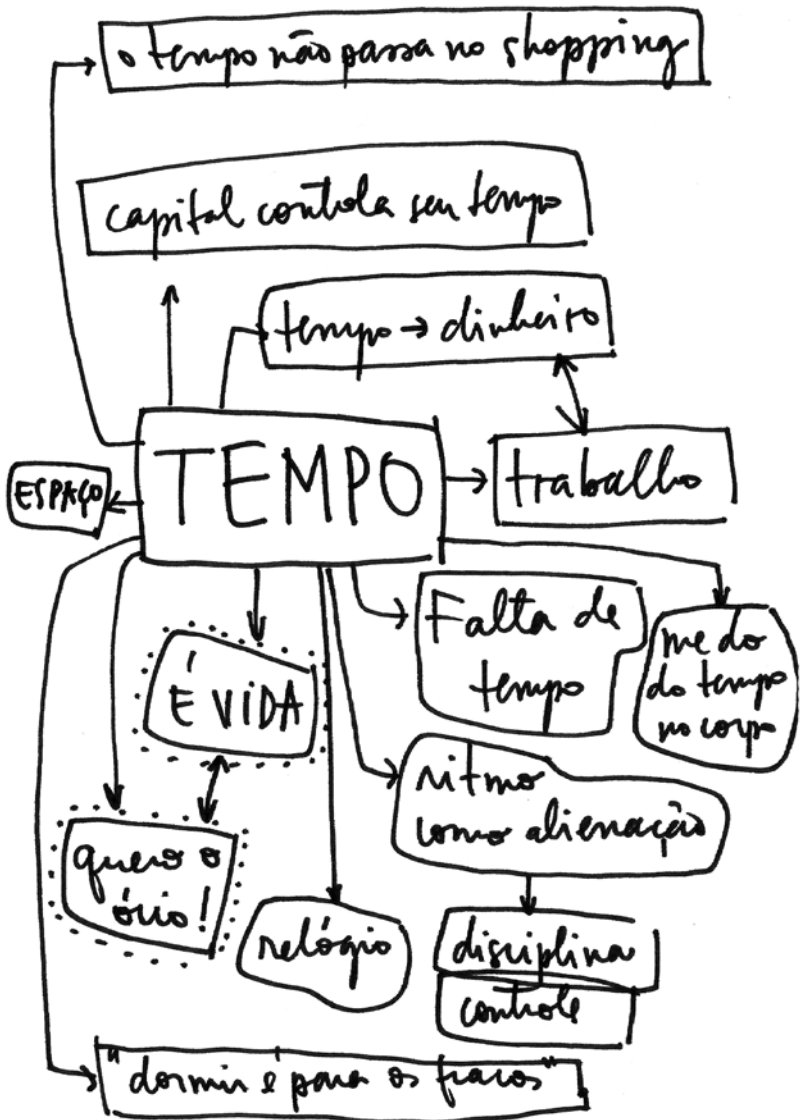 o tempo não passa no shopping
capital controla seu tempo
tempo → dinheiro
TEMPO
trabalho
ESPAÇO
Falta de
tempo
medo
do tempo
no corpo
É VIDA
ritmo
como alienação
quero o
ócio!
relógio
disciplina
controle
"dormir é para os fracos"